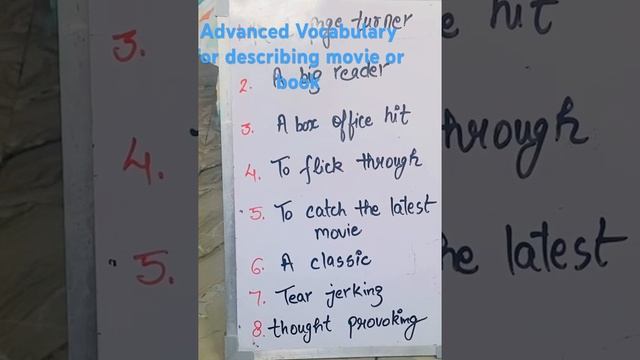 Advanced Vocabulary
for describing movie or
book
turner
2. A big reader
3. A box office hit
4. To flick through
5. To catch the latest
movie
6. A classic
7. Tear jerking
8. thought provoking
3.
4.
5.
hit
through
the latest